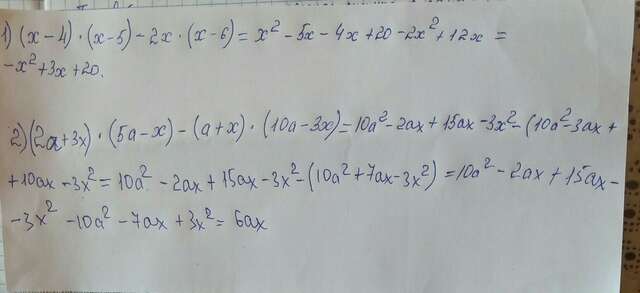 1) (x-4)·(x-5)-2x·(x-6)=x²-5x-4x+20-2x²+12x=
-x²+3x+20.
2)(2a+3x)·(5a-x)-(a+x)·(10a-3x)=10a²-2ax+15ax-3x²-(10a²-3ax+
+10ax-3x²=10a²-2ax+15ax-3x²-(10a²+7ax-3x²)=10a²-2ax+15ax-
-3x²-10a²-7ax+3x²=6ax